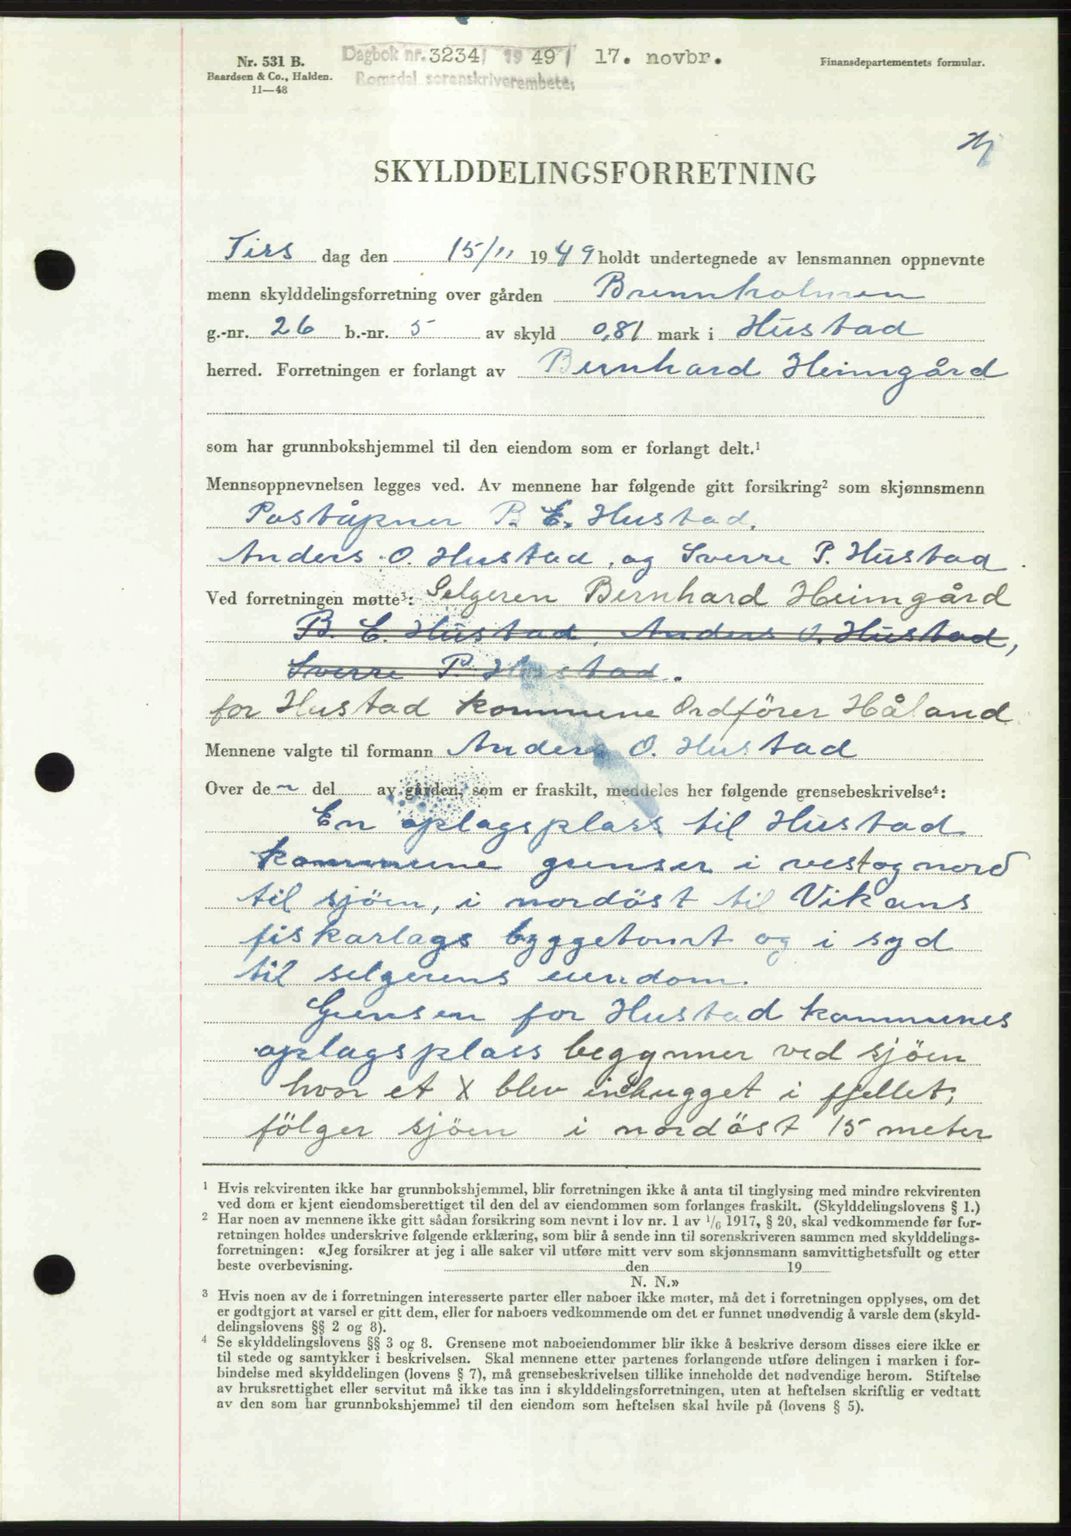 Nr. 531 B.
Baardsen & Co., Halden.
11—48
Dagbok nr. 3234/ 1949/ 17. novbr.
Romsdal sorenskriverembete.
Finansdepartementets formular.
SKYLDDELINGSFORRETNING
Tirs dag den 15/11 1949 holdt undertegnede av lensmannen oppnevnte
menn skylddelingsforretning over gården Brennholmen
g.-nr. 26 b.-nr. 5 av skyld 0,81 mark i Hustad
herred. Forretningen er forlangt av Bernhard Heimgård
som har grunnbokshjemmel til den eiendom som er forlangt delt.¹
Mennsoppnevnelsen legges ved. Av mennene har følgende gitt forsikring² som skjønnsmenn
Poståpner P. E. Hustad,
Anders O. Hustad, og Sverre P. Hustad.
Ved forretningen møtte³: Selgeren Bernhard Heimgård
B. E. Hustad, Anders O. Hustad,
Sverre P. Hustad.
for Hustad kommune Ordförer Håland
Mennene valgte til formann Anders O. Hustad
Over de~ del av gården, som er fraskilt, meddeles her følgende grensebeskrivelse⁴:
En oplagsplass til Hustad
kommune grenser i vest og nord
til sjöen, i nordöst til Vikans
fiskarlags byggetomt og i syd
til selgerens eiendom.
Grensen for Hustad kommunes
oplagsplass begynner ved sjöen
hvor et X blev inhugget i fjellet;
fölger sjöen i nordöst 15 meter
¹ Hvis rekvirenten ikke har grunnbokshjemmel, blir forretningen ikke å anta til tinglysing med mindre rekvirenten
ved dom er kjent eiendomsberettiget til den del av eiendommen som forlanges fraskilt. (Skylddelingslovens § 1.)
² Har noen av mennene ikke gitt sådan forsikring som nevnt i lov nr. 1 av 1/6 1917, § 20, skal vedkommende før for-
retningen holdes underskrive følgende erklæring, som blir å sende inn til sorenskriveren sammen med skylddelings-
forretningen: «Jeg forsikrer at jeg i alle saker vil utføre mitt verv som skjønnsmann samvittighetsfullt og etter
beste overbevisning. den 19
N. N.»
³ Hvis noen av de i forretningen interesserte parter eller naboer ikke møter, må det i forretningen opplyses, om det
er godtgjort at varsel er gitt dem, eller for naboers vedkommende om det er funnet unødvendig å varsle dem (skyld-
delingslovens §§ 2 og 8).
⁴ Se skylddelingslovens §§ 3 og 8. Grensene mot naboeiendommer blir ikke å beskrive dersom disses eiere ikke er
til stede og samtykker i beskrivelsen. Skal mennene etter partenes forlangende utføre delingen i marken i for-
bindelse med skylddelingen (lovens § 7), må grensebeskrivelsen tillike inneholde det nødvendige herom. Stiftelse
av bruksrettighet eller servitut må ikke tas inn i skylddelingsforretningen, uten at heftelsen skriftlig er vedtatt
av den som har grunnbokshjemmel til den eiendom som heftelsen skal hvile på (lovens § 5).